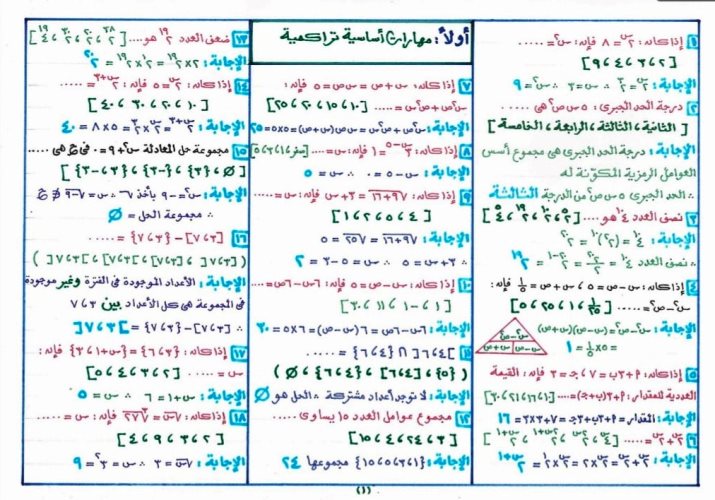 أولاً: مهارات أساسية تراكمية
١ إذا كانه: ٢^س = ٨ فإنه: س^٢ = .....
[ ٢ ، ٣ ، ٤ ، ٩ ]
الإجابة: ٢^س = ٢^٣ ∴ س = ٣ ∴ س^٢ = ٩
٢ درجة الحد الجبرى: ٥ س ص^٢ هى .....
[ الثانية ، الثالثة ، الرابعة ، الخامسة ]
الإجابة: درجة الحد الجبرى هى مجموع أسس
العوامل الرمزية المكونة له
∴ الحد الجبرى ٥ س ص^٢ من الدرجة الثالثة
٣ نصف العدد ٤^١٠ هو ....
الإجابة: ٤^١٠ = (٢^٢)^١٠ = ٢^٢٠
∴ نصف العدد ٤^١٠ = ٢^٢٠/٢ = ٢^(٢٠-١) = ٢^١٩
٤ إذا كانه: س - ص = ٥ ، س + ص = ١/٥ فإنه:
س^٢ - ص^٢ = .....
[ ١/٢٥ ، ١ ، ٢٥ ، ٥ ]
الإجابة: س^٢ - ص^٢ = (س - ص)(س + ص)
= ٥ × ١/٥ = ١
س^٢ - ص^٢
س - ص
س + ص
٥ إذا كانه: ٢ + ٣ ب = ٧ ، جـ = ٣ فإنه: القيمة
العددية للمقدار: ٢ + ٣(ب + جـ) = ....
[ ١٠ ، ١٦ ، ٢١ ، ٣٠ ]
الإجابة: المقدار = ٢ + ٣ب + ٣جـ = ٧ + ٣×٣ = ١٦
٦ ٢^س + ٢^س = .....
الإجابة: ٢^س + ٢^س = ٢ × ٢^س = ٢^١ × ٢^س = ٢^(س+١)
٧ إذا كانه: س + ص = س ص = ٥ فإنه:
س^٢ ص + ص^٢ س = .....
[ ١٠ ، ١٥ ، ٢٠ ، ٢٥ ]
الإجابة: س^٢ ص + ص^٢ س = س ص (س + ص) = ٥ × ٥ = ٢٥
٨ إذا كانه: ٣^(س-٥) = ١ فإنه: س = ....
الإجابة: س - ٥ = ٠ ∴ س = ٥
٩ إذا كانه: √(٩ + ١٦) = ٣ + س فإنه: س = ....
[ ٤ ، ٥ ، ٢ ، ١ ]
الإجابة: √(٩ + ١٦) = √٢٥ = ٥
∴ ٣ + س = ٥ ∴ س = ٥ - ٣ = ٢
١٠ إذا كانه: س - ص = ٥ فإنه: ٦س - ٦ص = ...
[ ١- ، ١ ، ١١ ، ٣٠ ]
الإجابة: ٦س - ٦ص = ٦(س - ص) = ٦ × ٥ = ٣٠
١١ ]٤ ، ٦[ ∩ {٤ ، ٦} = .....
( {٥} ، [٤ ، ٦] ، {٤ ، ٦} ، Ø )
الإجابة: لا توجد أعداد مشتركة ∴ الحل هو Ø
١٢ مجموع عوامل العدد ١٥ يساوى .....
[ ٣ ، ٢٤ ، ٤ ، ١٥ ]
الإجابة: {١ ، ٣ ، ٥ ، ١٥} مجموعها ٢٤
١٣ ضعف العدد ٢^١٩ هو ....
[ ٢^٣٨ ، ٢^٢٠ ، ٢^٣٠ ، ٤^١٩ ]
الإجابة: ٢ × ٢^١٩ = ٢^١ × ٢^١٩ = ٢^٢٠
١٤ إذا كانه: ٢^س = ٥ فإنه: ٢^(س+٣) = ....
[ ١٠ ، ٢٠ ، ٣٠ ، ٤٠ ]
الإجابة: ٢^(س+٣) = ٢^س × ٢^٣ = ٥ × ٨ = ٤٠
١٥ مجموعة حل المعادلة س^٢ + ٩ = ٠ فى ح هى ....
[ Ø ، {٣} ، {٣-} ، {٣ ، ٣-} ]
الإجابة: س^٢ = -٩ بأخذ √ ∴ س = √-٩ ∉ ح
∴ مجموعة الحل = Ø
١٦ [٣ ، ٧] - {٣ ، ٧} = ......
( [٣ ، ٧] ، ]٣ ، ٧] ، [٣ ، ٧[ ، ]٣ ، ٧[ )
الإجابة: الأعداد الموجودة فى الفترة وغير موجودة
فى المجموعة هى كل الأعداد بين ٣ ، ٧
∴ [٣ ، ٧] - {٣ ، ٧} = ]٣ ، ٧[
١٧ إذا كانه: {٣ ، ٦} = {س + ١ ، ٣} فإنه:
س = .....
[ ٢ ، ٣ ، ٤ ، ٥ ]
الإجابة: س + ١ = ٦ ∴ س = ٥
١٨ إذا كانه: √س = ∛٢٧ فإنه: س = ....
[ ٢ ، ٣ ، ٩ ، ٤ ]
الإجابة: √س = ٣ ∴ س = ٣^٢ = ٩
(١)